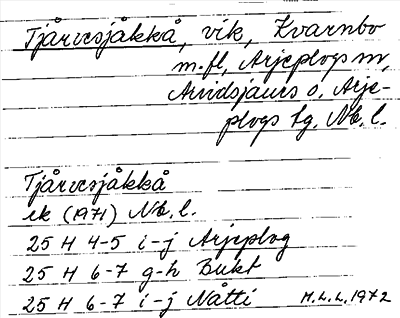 Tjårvesjåkkå, vik, Kvarnbo
m.fl, Arjeplogs m,
Arvidsjaurs o. Arje-
plogs tg. Nb. l.
Tjårvesjåkkå
ek (1971) Nb. l.
25 H 4-5 i-j Arjeplog
25 H 6-7 g-h Bukt
25 H 6-7 i-j Nåtti H.L.L. 1972